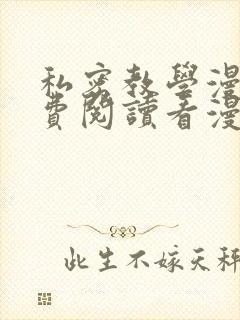 私密教學漫
費閱讀看漫
此生不嫁天秤